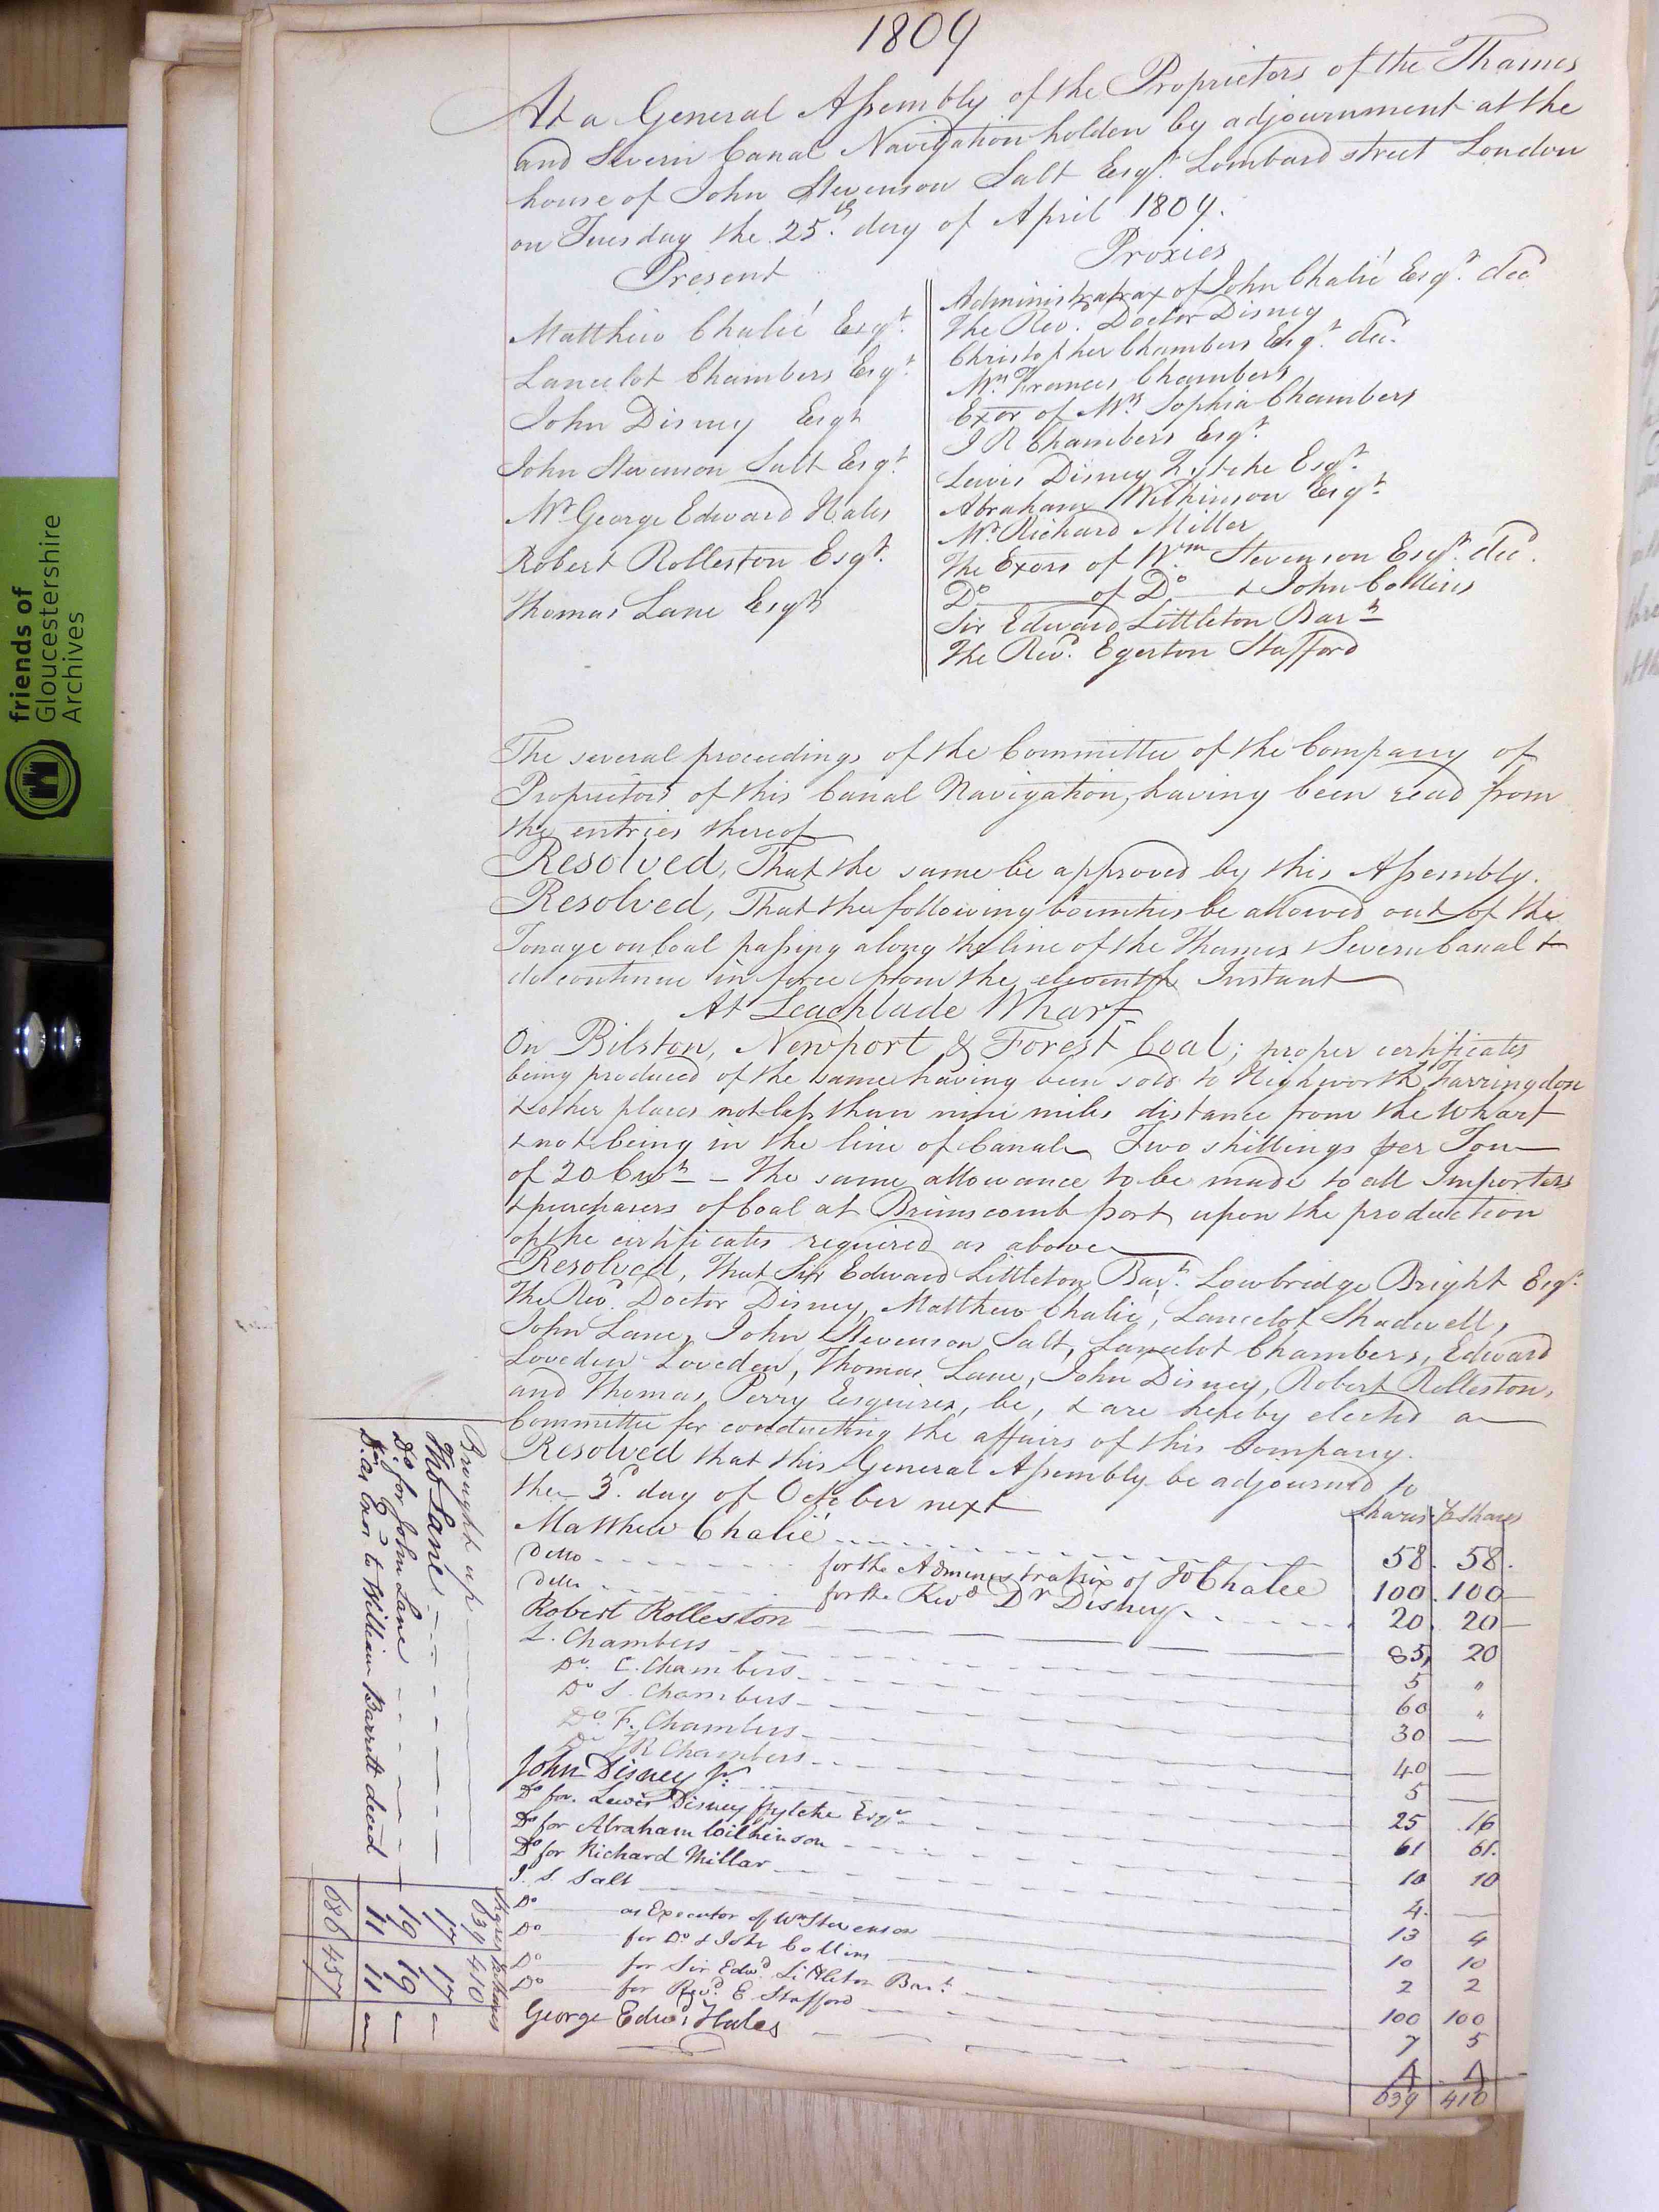 1809
At a General Assembly of the Proprietors of the Thames
and Severn Canal Navigation holden by adjournment at the
house of John Stevenson Salt Esqr. Lombard street London
on Tuesday the 25th. day of April 1809.
Present
Matthew Chalié Esqr.
Lancelot Chambers Esqr.
John Disney Esqr
John Stevenson Salt Esqr.
Mr George Edward Hales
Robert Rolleston Esqr.
Thomas Lane Esqr
Proxies
Administratrax of John Chalié Esqr. decd
The Rev. Doctor Disney
Christopher Chambers Esqr. decd.
Mrs Frances Chambers
Exor of Mrs Sophia Chambers
J R Chambers Esqr.
Lewis Disney Fytche Esqr.
Abraham Wilkinson Esqr.
Mr. Richard Miller
The Exors of Wm. Stevenson Esqr. decd.
Do of Do & John Collins
Sir Edward Littleton Bart
The Revd. Egerton Stafford
The several proceedings of the Committee of the Company of
Proprietors of this Canal Navigation, having been read from
the entries thereof
Resolved, That the same be approved by this Assembly.
Resolved, That the following bounties be allowed out of the
Tonage on Coal passing along the line of the Thames & Severn Canal &
do continue in force from the eleventh Instant
At Leachlade Wharf
On Bilston, Newport & Forest Coal; proper certificates
being produced of the same having been sold to Highworth, Farringdon
& other places not less than nine miles distance from the Wharf
& not being in the line of Canal Two shillings per Ton
of 20 Cwt - The same allowance to be made to all Importers
& purchasers of Coal at Brimscomb port upon the production
of the certificates required as above
Resolved, That Sir Edward Littleton Bart. Lowbridge Bright Esqr.
The Revd. Doctor Disney, Matthew Chalié, Lancelot Shadwell,
John Lane, John Stevenson Salt, Lancelot Chambers, Edward
Loveden Loveden, Thomas Lane, John Disney, Robert Rolleston,
and Thomas Perry Esquires, be, & are hereby elected a
Committee for conducting the affairs of this Company.
Resolved that this General Assembly be adjourned to
the 3d. day of October next
Shares ½ Shares
Matthew Chalié 58. 58.
ditto for the Administratrix of Jo Chalié 100. 100
ditto for the Revd Dr Disney 20. 20
Robert Rolleston 85, 20
L. Chambers 5 "
Do. C. Chambers 60 "
Do S. Chambers 30
Do. F. Chambers 40
Do J R Chambers 5
John Disney Jr. 25 16
Do for. Lewis Disney ffytche Esqr 61 61.
Do for Abraham Wilkinson 10 10
Do for Richard Millar 4.
J. S. Salt 13 4
Do as Executor of Wm Stevenson 10 10
Do for Do & John Collins 2 2
Do for Sir Edwd. Littleton Bart. 100 100
Do for Revd. E. Stafford 7 5
George Edwd. Hales 4 4
639 410
Shares ½ Shares
Brought up 639 410
Thos Lane 17 17
Do. for John Lane 19 19
Do. as Exor to William Barrett deced 11 11
686 457
friends of
Gloucestershire
Archives